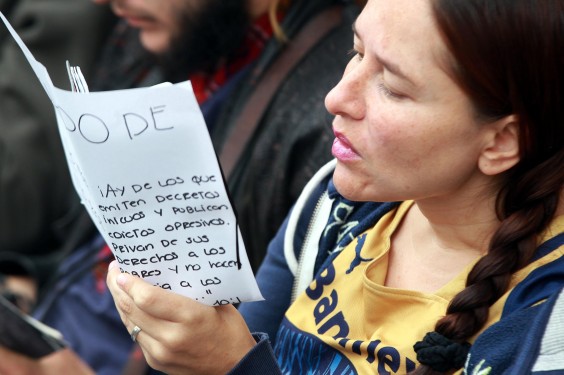 DO DE
¡AY DE LOS QUE
EMITEN DECRETOS
INICUOS Y PUBLICAN
EDICTOS OPRESIVOS.
PRIVAN DE SUS
DERECHOS A LOS
POBRES Y NO HACEN
A LOS